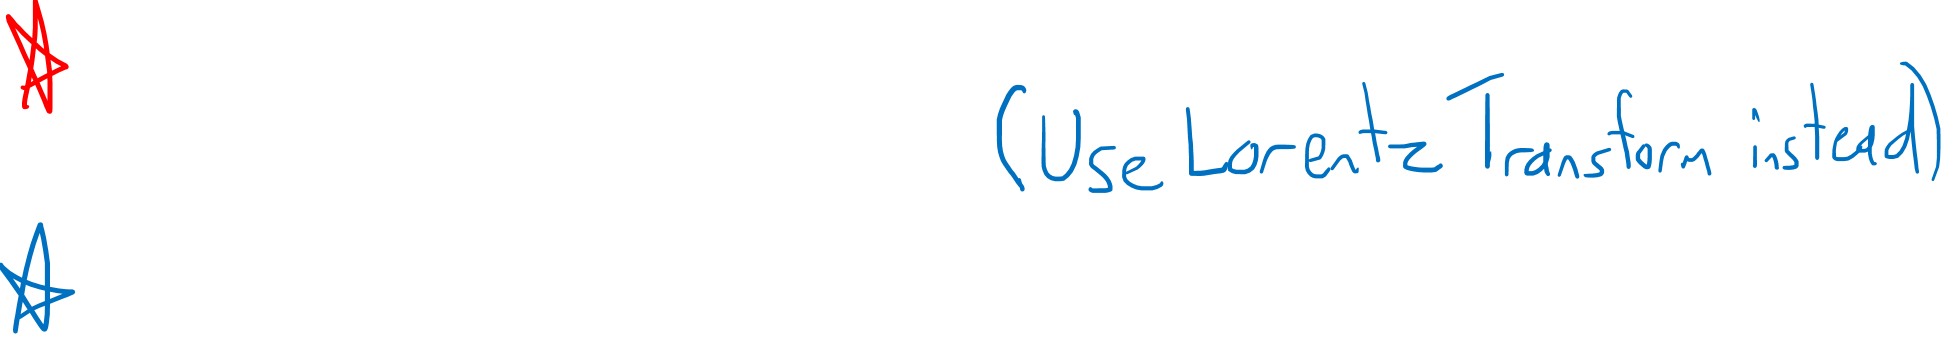 (Use Lorentz Transform instead)